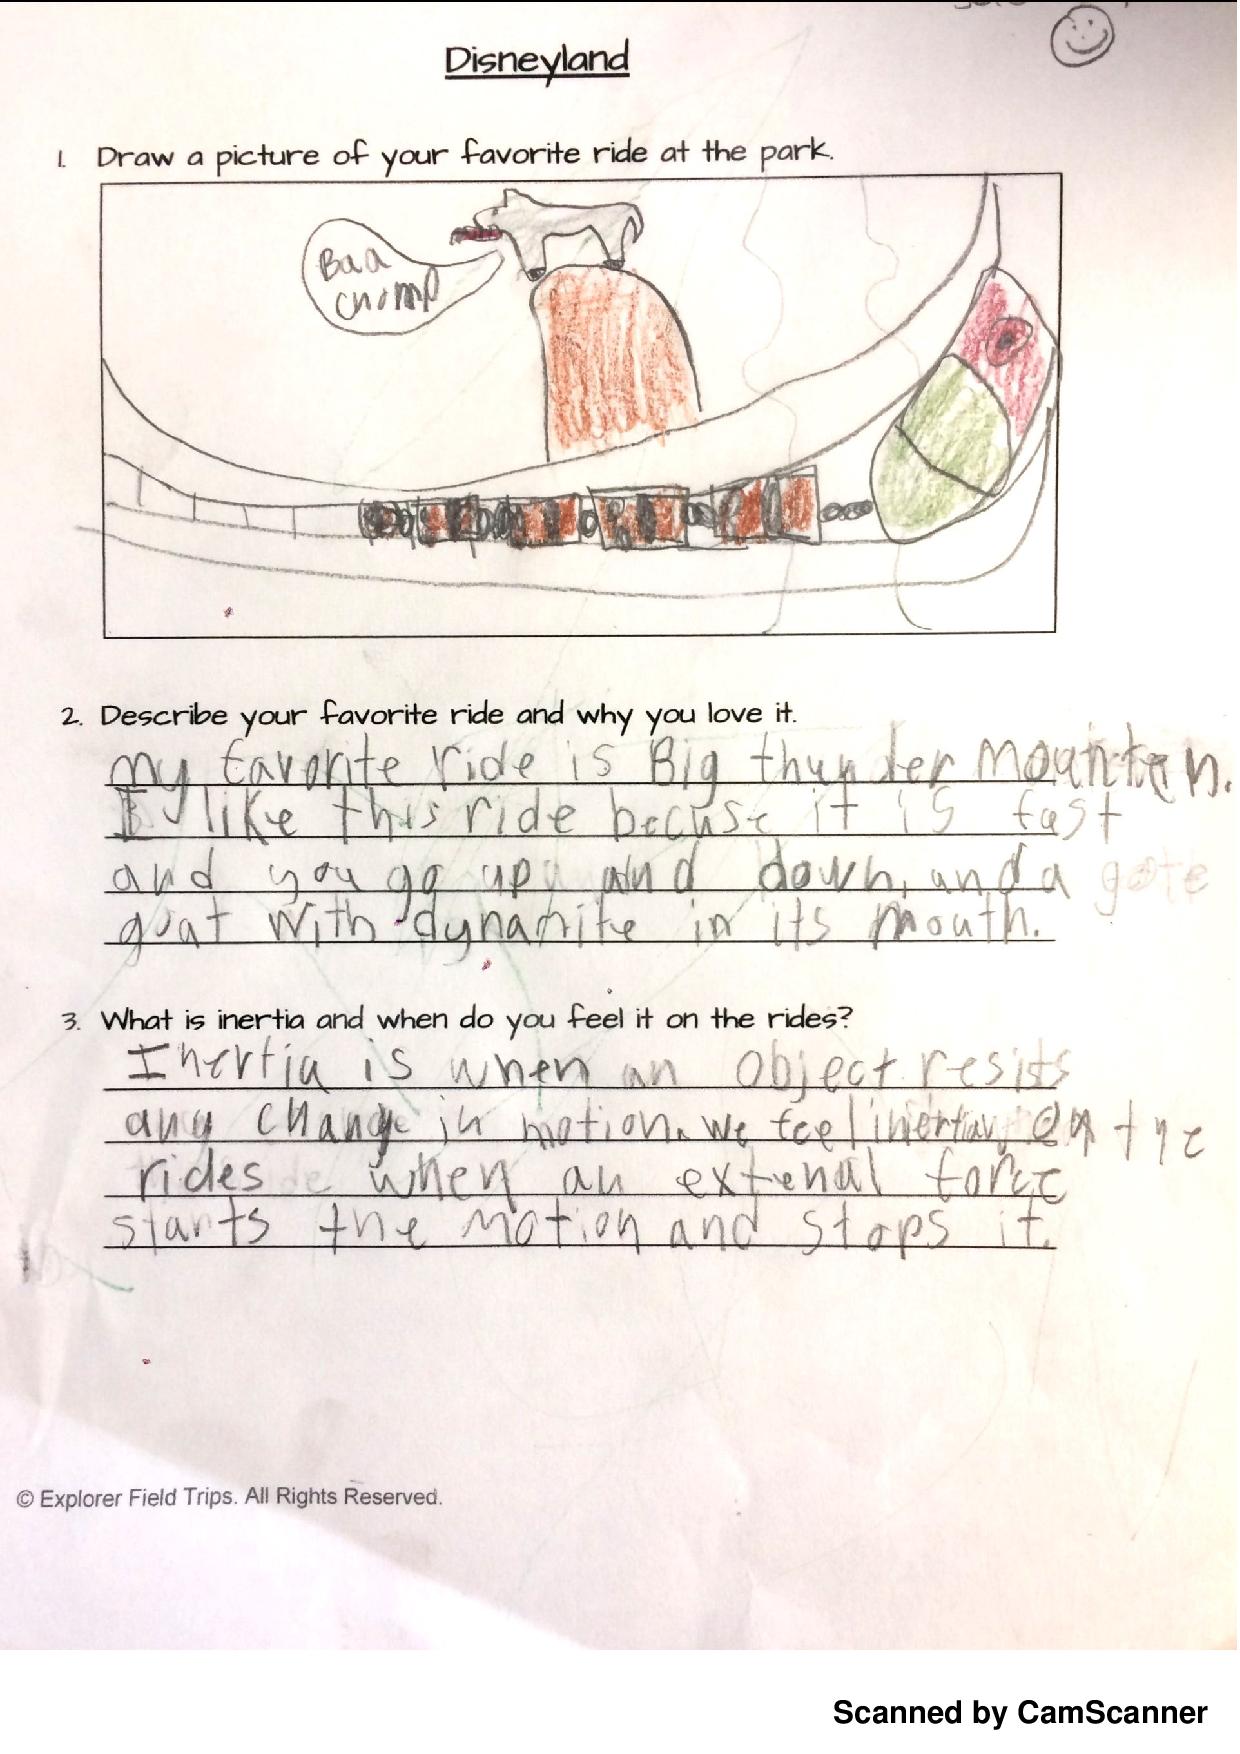 Disneyland
1. Draw a picture of your favorite ride at the park.
Baa
chomp
2. Describe your favorite ride and why you love it.
my favorite ride is Big thunder Mountan.
I like this ride becuse it is fast
and you go up and down, and a gote
goat with dynamite in its mouth.
3. What is inertia and when do you feel it on the rides?
Inertia is when an object resists
any change in motion. we feel inertia on the
rides when an extenal force
starts the motion and stops it.
© Explorer Field Trips. All Rights Reserved.
Scanned by CamScanner